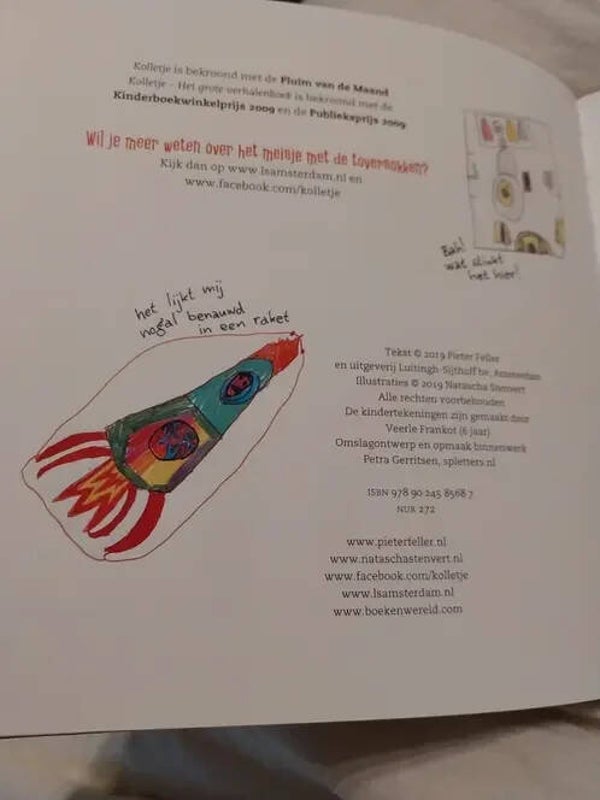 Kolletje is bekroond met de Pluim van de Maand
Kolletje – Het grote verhalenboek is bekroond met de
Kinderboekwinkelprijs 2009 en de Publieksprijs 2009
Wil je meer weten over het meisje met de toversokken?
Kijk dan op www.lsamsterdam.nl en
www.facebook.com/kolletje
Bah!
wat stinkt
het hier!
het lijkt mij
nogal benauwd
in een raket
Tekst © 2019 Pieter Feller
en uitgeverij Luitingh-Sijthoff bv, Amsterdam
Illustraties © 2019 Natascha Stenvert
Alle rechten voorbehouden
De kindertekeningen zijn gemaakt door
Veerle Frankot (6 jaar)
Omslagontwerp en opmaak binnenwerk
Petra Gerritsen, spletters.nl
ISBN 978 90 245 8568 7
NUR 272
www.pieterfeller.nl
www.nataschastenvert.nl
www.facebook.com/kolletje
www.lsamsterdam.nl
www.boekenwereld.com